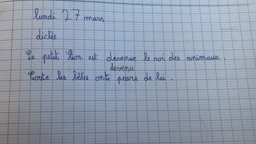 lundi 27 mars
dictée
Le petit lion est devenue le roi des animaux.
devenu
Toute les bêtes onts peurs de lui.